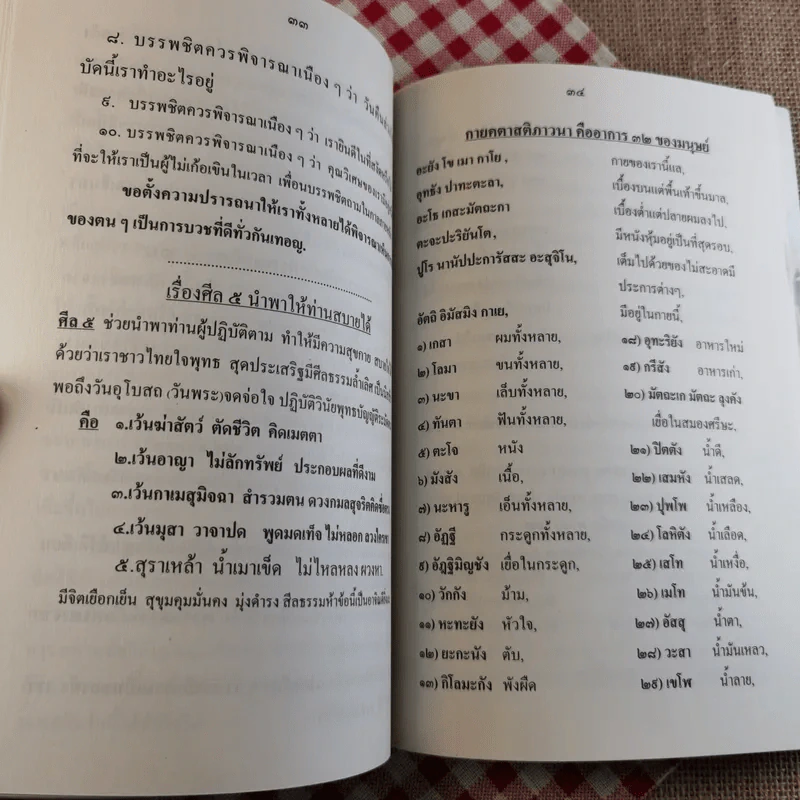 ๓๓
๘. บรรพชิตควรพิจารณาเนือง ๆ ว่า วันคืน
บัดนี้เราทำอะไรอยู่
๙. บรรพชิตควรพิจารณาเนือง ๆ ว่า เรายินดีในที่
๑๐. บรรพชิตควรพิจารณาเนือง ๆ ว่า คุณวิเศษของเรา
ที่จะให้เราเป็นผู้ไม่เก้อเขินในเวลา เพื่อนบรรพชิตถามในกาล
ขอตั้งความปรารถนาให้เราทั้งหลายได้พิจารณา
ของตน ๆ เป็นการบวชที่ดีทั่วกันเทอญ.
เรื่องศีล ๕ นำพาให้ท่านสบายได้
ศีล ๕ ช่วยนำพาท่านผู้ปฏิบัติตาม ทำให้มีความสุขกาย
ด้วยว่าเราชาวไทยใจพุทธ สุดประเสริฐมีศีลธรรมล้ำเลิศ
พอถึงวันอุโบสถ (วันพระ)จดจ่อใจ ปฏิบัติวินัยพุทธบัญญัติ
คือ ๑.เว้นฆ่าสัตว์ ตัดชีวิต คิดเมตตา
๒.เว้นอาญา ไม่ลักทรัพย์ ประกอบผลที่ดีงาม
๓.เว้นกาเมสุมิจฉา สำรวมตน ดวงกมลสุจริตคิด
๔.เว้นมุสา วาจาปด พูดมดเท็จ ไม่หลอก
๕.สุราเหล้า น้ำเมาเข็ด ไม่ไหลหลง ผวงหา
มีจิตเยือกเย็น สุขุมคุมมั่นคง มุ่งดำรง สีลธรรมห้าข้อนี้เป็น
๓๔
กายคตาสติภาวนา คืออาการ ๓๒ ของมนุษย์
อะยัง โข เมา กาโย , กายของเรานี้แล,
อุทธัง ปาทะตะลา, เบื้องบนแต่พื้นเท้าขึ้นมาล,
อะโธ เกสะมัตถะกา เบื้องต่ำแต่ปลายผมลงไป,
ตะจะปะริยันโต, มีหนังหุ้มอยู่เป็นที่สุดรอบ,
ปูโร นานัปปะการัสสะ อะสุจิโน, เต็มไปด้วยของไม่สะอาดมี
ประการต่างๆ,
อัตถิ อิมัสมิง กาเย, มีอยู่ในกายนี้,
๑) เกสา ผมทั้งหลาย, ๑๘) อุทะริยัง อาหารใหม่
๒) โลมา ขนทั้งหลาย, ๑๙) กรีสัง อาหารเก่า,
๓) นะขา เล็บทั้งหลาย, ๒๐) มัตถะเก มัตถะ ลุงคัง
๔) ทันตา ฟันทั้งหลาย, เยื่อในสมองศรีษะ,
๕) ตะโจ หนัง ๒๑) ปิตตัง น้ำดี,
๖) มังสัง เนื้อ, ๒๒) เสมหัง น้ำเสลด,
๗) นะหารู เอ็นทั้งหลาย, ๒๓) ปุพโพ น้ำเหลือง,
๘) อัฏฐี กระดูกทั้งหลาย, ๒๔) โลหิตัง น้ำเลือด,
๙) อัฏฐิมิญชัง เยื่อในกระดูก, ๒๕) เสโท น้ำเหงื่อ,
๑๐) วักกัง ม้าม, ๒๖) เมโท น้ำมันข้น,
๑๑) หะทะยัง หัวใจ, ๒๗) อัสสุ น้ำตา,
๑๒) ยะกะนัง ตับ, ๒๘) วะสา น้ำมันเหลว,
๑๓) กิโลมะกัง พังผืด ๒๙) เขโพ น้ำลาย,